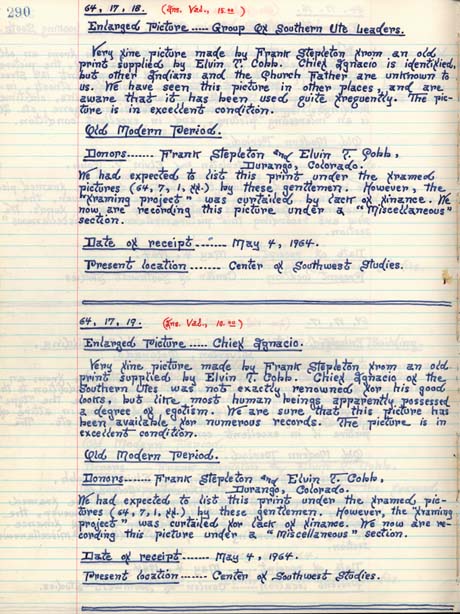 290
64, 17, 18. (Ins. Val., 15.00)
Enlarged Picture ..... Group of Southern Ute Leaders.
Very fine picture made by Frank Stepleton from an old
print supplied by Elvin T. Cobb. Chief Ignacio is identified,
but other Indians and the Church Father are unknown to
us. We have seen this picture in other places, and are
aware that it has been used quite frequently. The pic-
ture is in excellent condition.
Old Modern Period.
Donors....... Frank Stepleton and Elvin T. Cobb,
Durango, Colorado.
We had expected to list this print under the framed
pictures (64, 7, 1, ff.) by these gentlemen. However, the
"framing project" was curtailed by lack of finance. We
now are recording this picture under a "Miscellaneous"
section.
Date of receipt ....... May 4, 1964.
Present location ....... Center of Southwest Studies.
64, 17, 19. (Ins. Val., 10.00)
Enlarged Picture ..... Chief Ignacio.
Very fine picture made by Frank Stepleton from an old
print supplied by Elvin T. Cobb. Chief Ignacio of the
Southern Utes was not exactly renowned for his good
looks, but like most human beings apparently possessed
a degree of egotism. We are sure that this picture has
been available for numerous records. The picture is in
excellent condition.
Old Modern Period.
Donors...... Frank Stepleton and Elvin T. Cobb,
Durango, Colorado.
We had expected to list this print under the framed pic-
tures (64, 7, 1, ff.) by these gentlemen. However, the "framing
project" was curtailed for lack of finance. We now are re-
cording this picture under a "Miscellaneous" section.
Date of receipt ...... May 4, 1964.
Present location ...... Center of Southwest Studies.